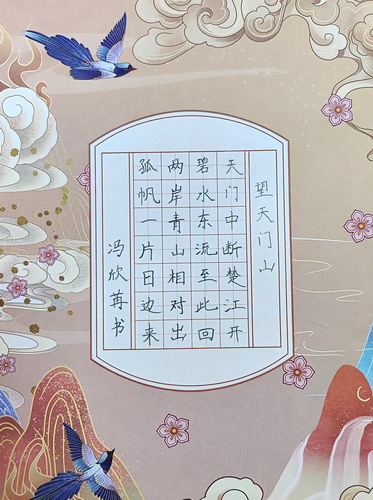 望天门山
天门中断楚江开
碧水东流至此回
两岸青山相对出
孤帆一片日边来
冯欣苒书